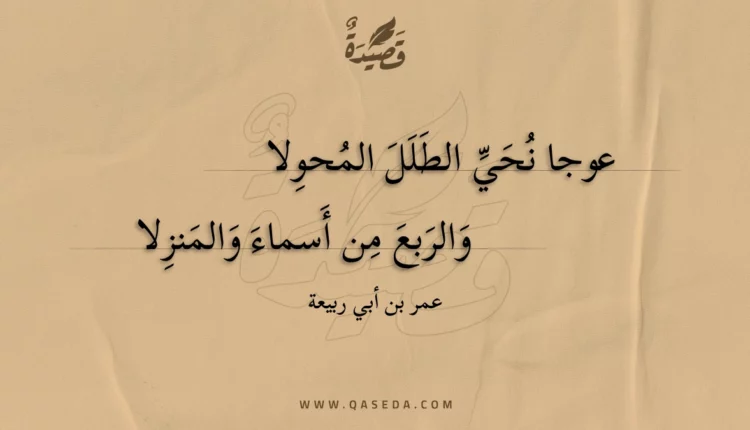 قَصِيدَةٌ
عوجا نُحَيِّ الطَلَلَ المُحوِلا
وَالرَبعَ مِن أَسماءَ وَالمَنزِلا
عمر بن أبي ربيعة
WWW.QASEDA.COM